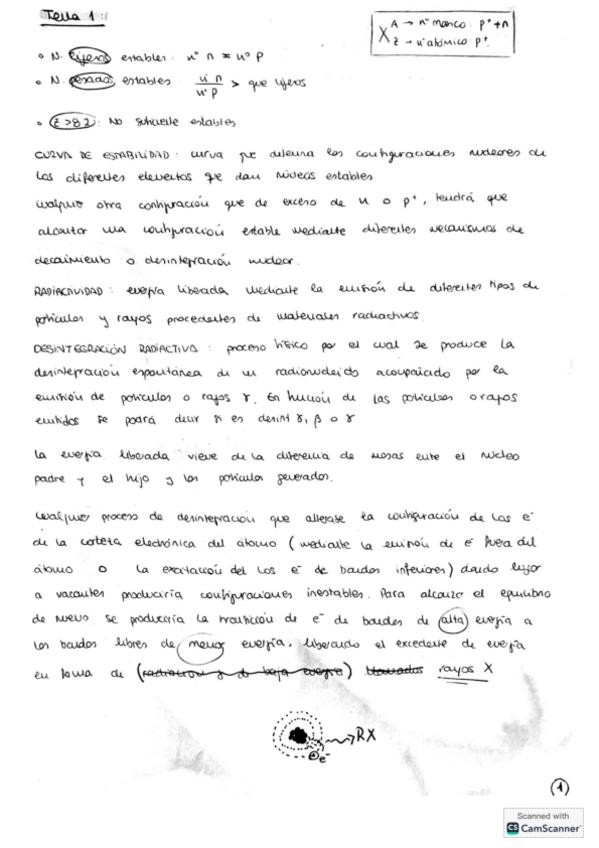 Tema 1:
X A → nº másico: p⁺+n
Z → nº atómico p⁺
• N. ligeros estables: nº n = nº p
• N. pesados estables nº n / nº p > que ligeros
• Z>82: No suficiente estables
CURVA DE ESTABILIDAD: curva que delimita las configuraciones nucleares de
los diferentes elementos que dan núcleos estables
Cualquier otra configuración que de exceso de n o p⁺, tendrá que
alcanzar una configuración estable mediante diferentes mecanismos de
decaimiento o desintegración nuclear.
RADIACTIVIDAD: energía liberada mediante la emisión de diferentes tipos de
partículas y rayos procedentes de materiales radiactivos.
DESINTEGRACIÓN RADIACTIVA: proceso físico por el cual se produce la
desintegración espontánea de un radionucleido acompañado por la
emisión de partículas o rayos γ. En función de las partículas o rayos
emitidos se podrá decir si es desint γ, β o γ
La energía liberada viene de la diferencia de masas entre el núcleo
padre y el hijo y las partículas generadas.
Cualquier proceso de desintegración que alterase la configuración de los e⁻
de la corteza electrónica del átomo (mediante la emisión de e⁻ fuera del
átomo o la excitación del los e⁻ de bandas inferiores) dando lugar
a vacantes produciría configuraciones inestables. Para alcanzar el equilibrio
de nuevo se produciría la transición de e⁻ de bandas de alta energía a
las bandas libres de menor energía, liberando el excedente de energía
en forma de (radiación γ de baja energía) llamados rayos X
RX
e⁻
1
Scanned with
CS CamScanner